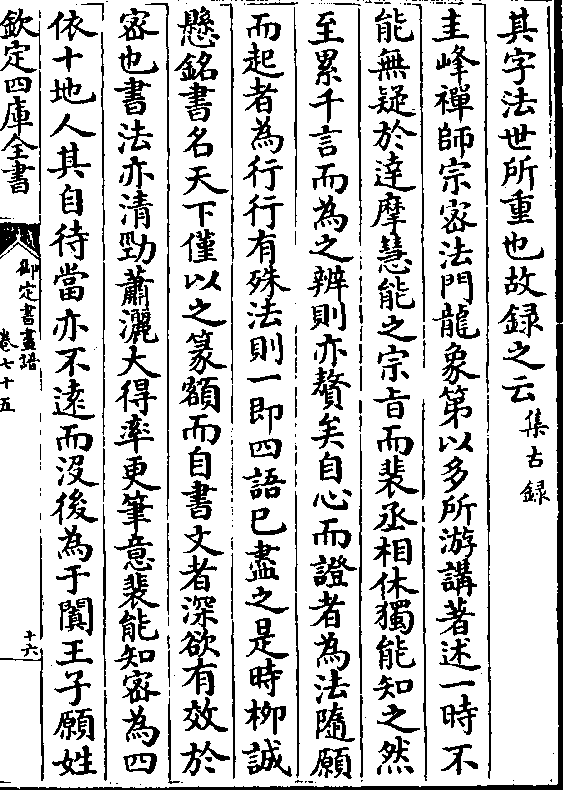 其字法世所重也故録之云集古録
圭峰禪師宗宻法門龍象第以多所游講著述一時不
能無疑於逹摩慧能之宗旨而裴丞相休獨能知之然
至累千言而為之辨則亦贅矣自心而證者為法隨願
而起者為行行有殊法則一即四語已盡之是時栁誠
懸銘書名天下僅以之篆額而自書文者深欲有效於
宻也書法亦清勁蕭灑大得率更筆意裴能知宻為四
依十地人其自待當亦不逺而沒後為于闐王子願姓
欽定四庫全書
御定書畫譜
卷七十五
十六